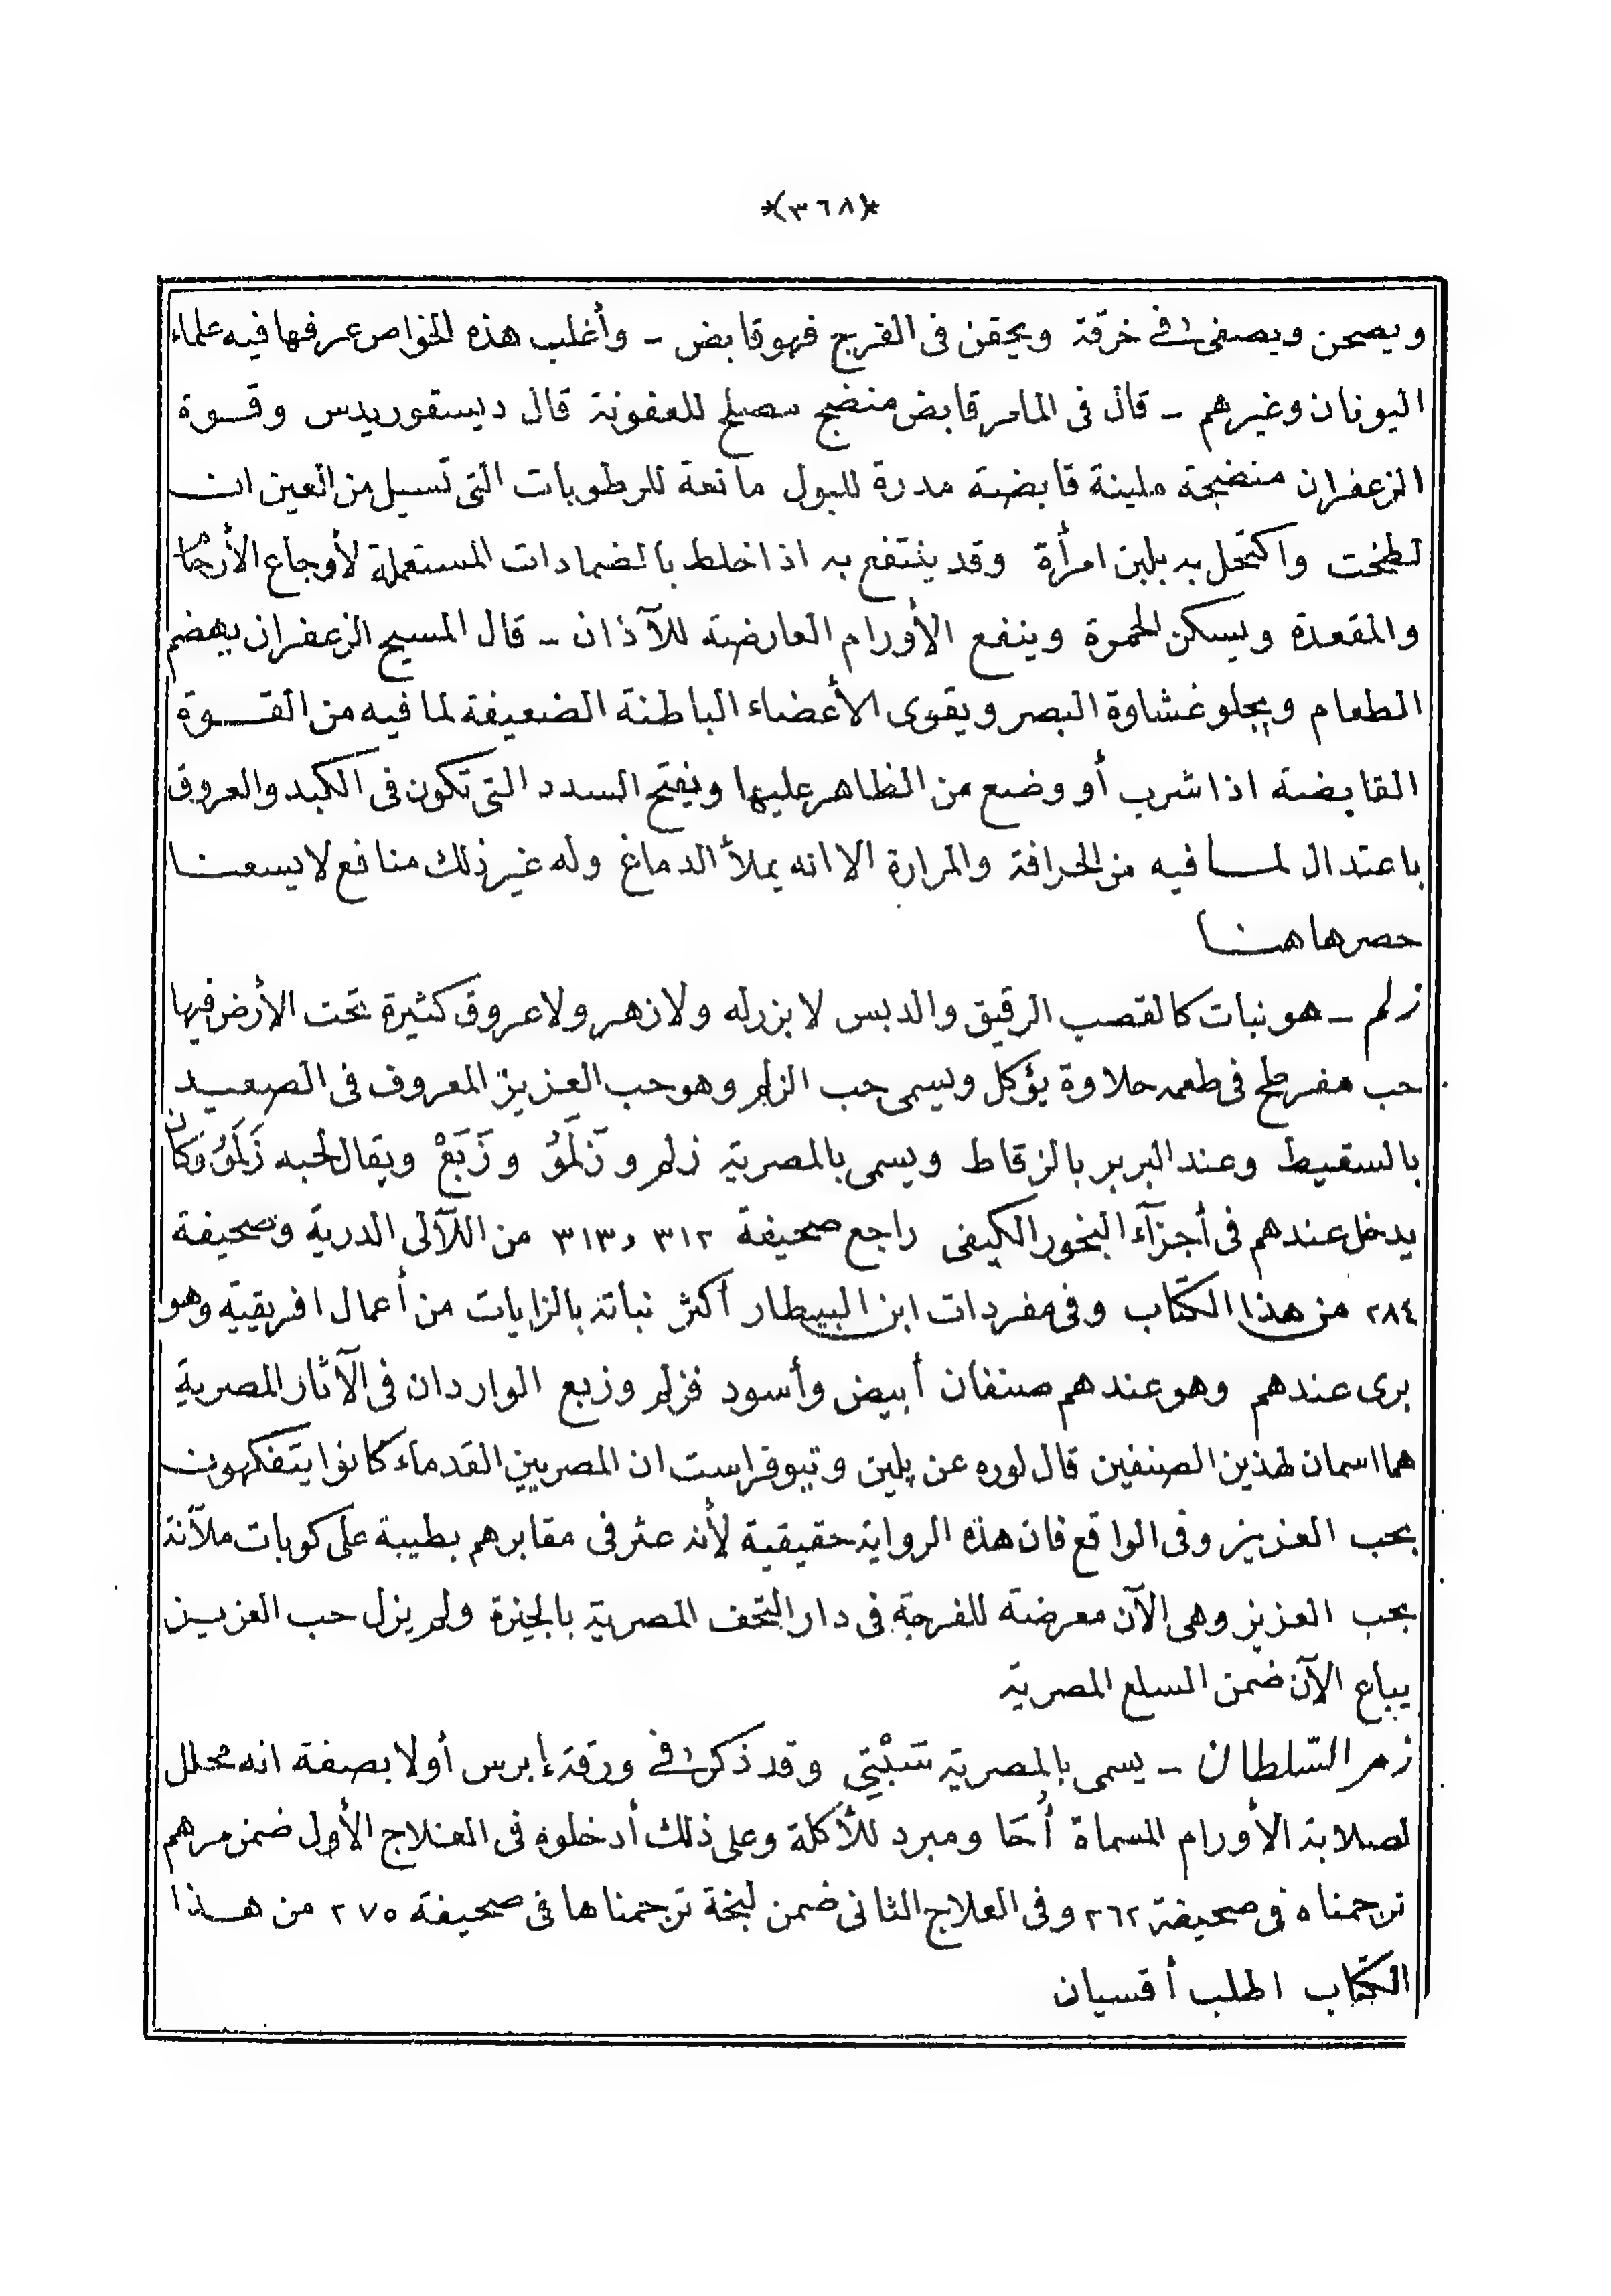 *(٣٦٨)*
ويصحن ويصفى فى خرقة ويحقن فى الفرج فهو قابض - وأغلب هذه الخواص عرفها فيه علماء
اليونان وغيرهم - قال فى المامر قابض منضج مصلح للعفونة قال ديسقوريدس وقوة
الزعفران منضجة ملينة قابضة مدرة للبول مانعة للرطوبات التى تسيل من العين ان
لطخت واكتحل به بلبن امرأة وقد ينتفع به اذا خلط بالضمادات المستعملة لأوجاع الأرحام
والمقعدة ويسكن الحمرة وينفع الأورام العارضة للآذان - قال المسيح الزعفران يهضم
الطعام ويجلو غشاوة البصر ويقوى الأعضاء الباطنة الضعيفة لما فيه من القوة
القابضة اذا شرب أو وضع من الظاهر عليها ويفتح السدد التى تكون فى الكبد والعروق
باعتدال لما فيه من الحرافة والمرارة الا انه يملأ الدماغ وله غير ذلك منافع لا يسعنا
حصرها هنا
زلم - هو نبات كالقصب الرقيق والدبس لا بزر له ولا زهر ولا عروق كثيرة تحت الأرض فيها
حب مفرطح فى طعمه حلاوة يؤكل ويسمى حب الزلم وهو حب العزيز المعروف فى الصعيد
بالسقيط وعند البربر بالزقاط ويسمى بالمصرية زلم و زَلَمُو و زَبَعْ ويقال لحبه زَلَمُو وكان
يدخل عندهم فى أجزآء البخور الكيفى راجع صحيفة ٣١٢ و٣١٣ من اللآلى الدرية وصحيفة
٢٨٤ من هذا الكتاب وفى مفردات ابن البيطار أكثر نباته بالزايات من أعمال افريقية وهو
برى عندهم وهو عندهم صنفان أبيض وأسود فزلم وزبع الواردان فى الآثار المصرية
هما اسمان لهذين الصنفين قال لوره عن پلين وتيوفراست ان المصريين القدماء كانوا يتفكهون
بحب العزيز وفى الواقع فان هذه الرواية حقيقية لأنه عثر فى مقابرهم بطيبة على كوبات ملآنة
بحب العزيز وهى الآن معرضة للفرجة فى دار التحف المصرية بالجيزة ولم يزل حب العزيز
يباع الآن ضمن السلع المصرية
زمر السّلطان - يسمى بالمصرية شَبْتِي وقد ذكر فى ورقة إبرس أولا بصفة انه محلل
لصلابة الأورام المسماة أُحَا ومبرد للأكلة وعلى ذلك أدخلوه فى العلاج الأول ضمن مرهم
ترجمناه فى صحيفة ٢٦٢ وفى العلاج الثانى ضمن لبخة ترجمناها فى صحيفة ٢٧٥ من هذا
الكتاب اطلب أقسيان